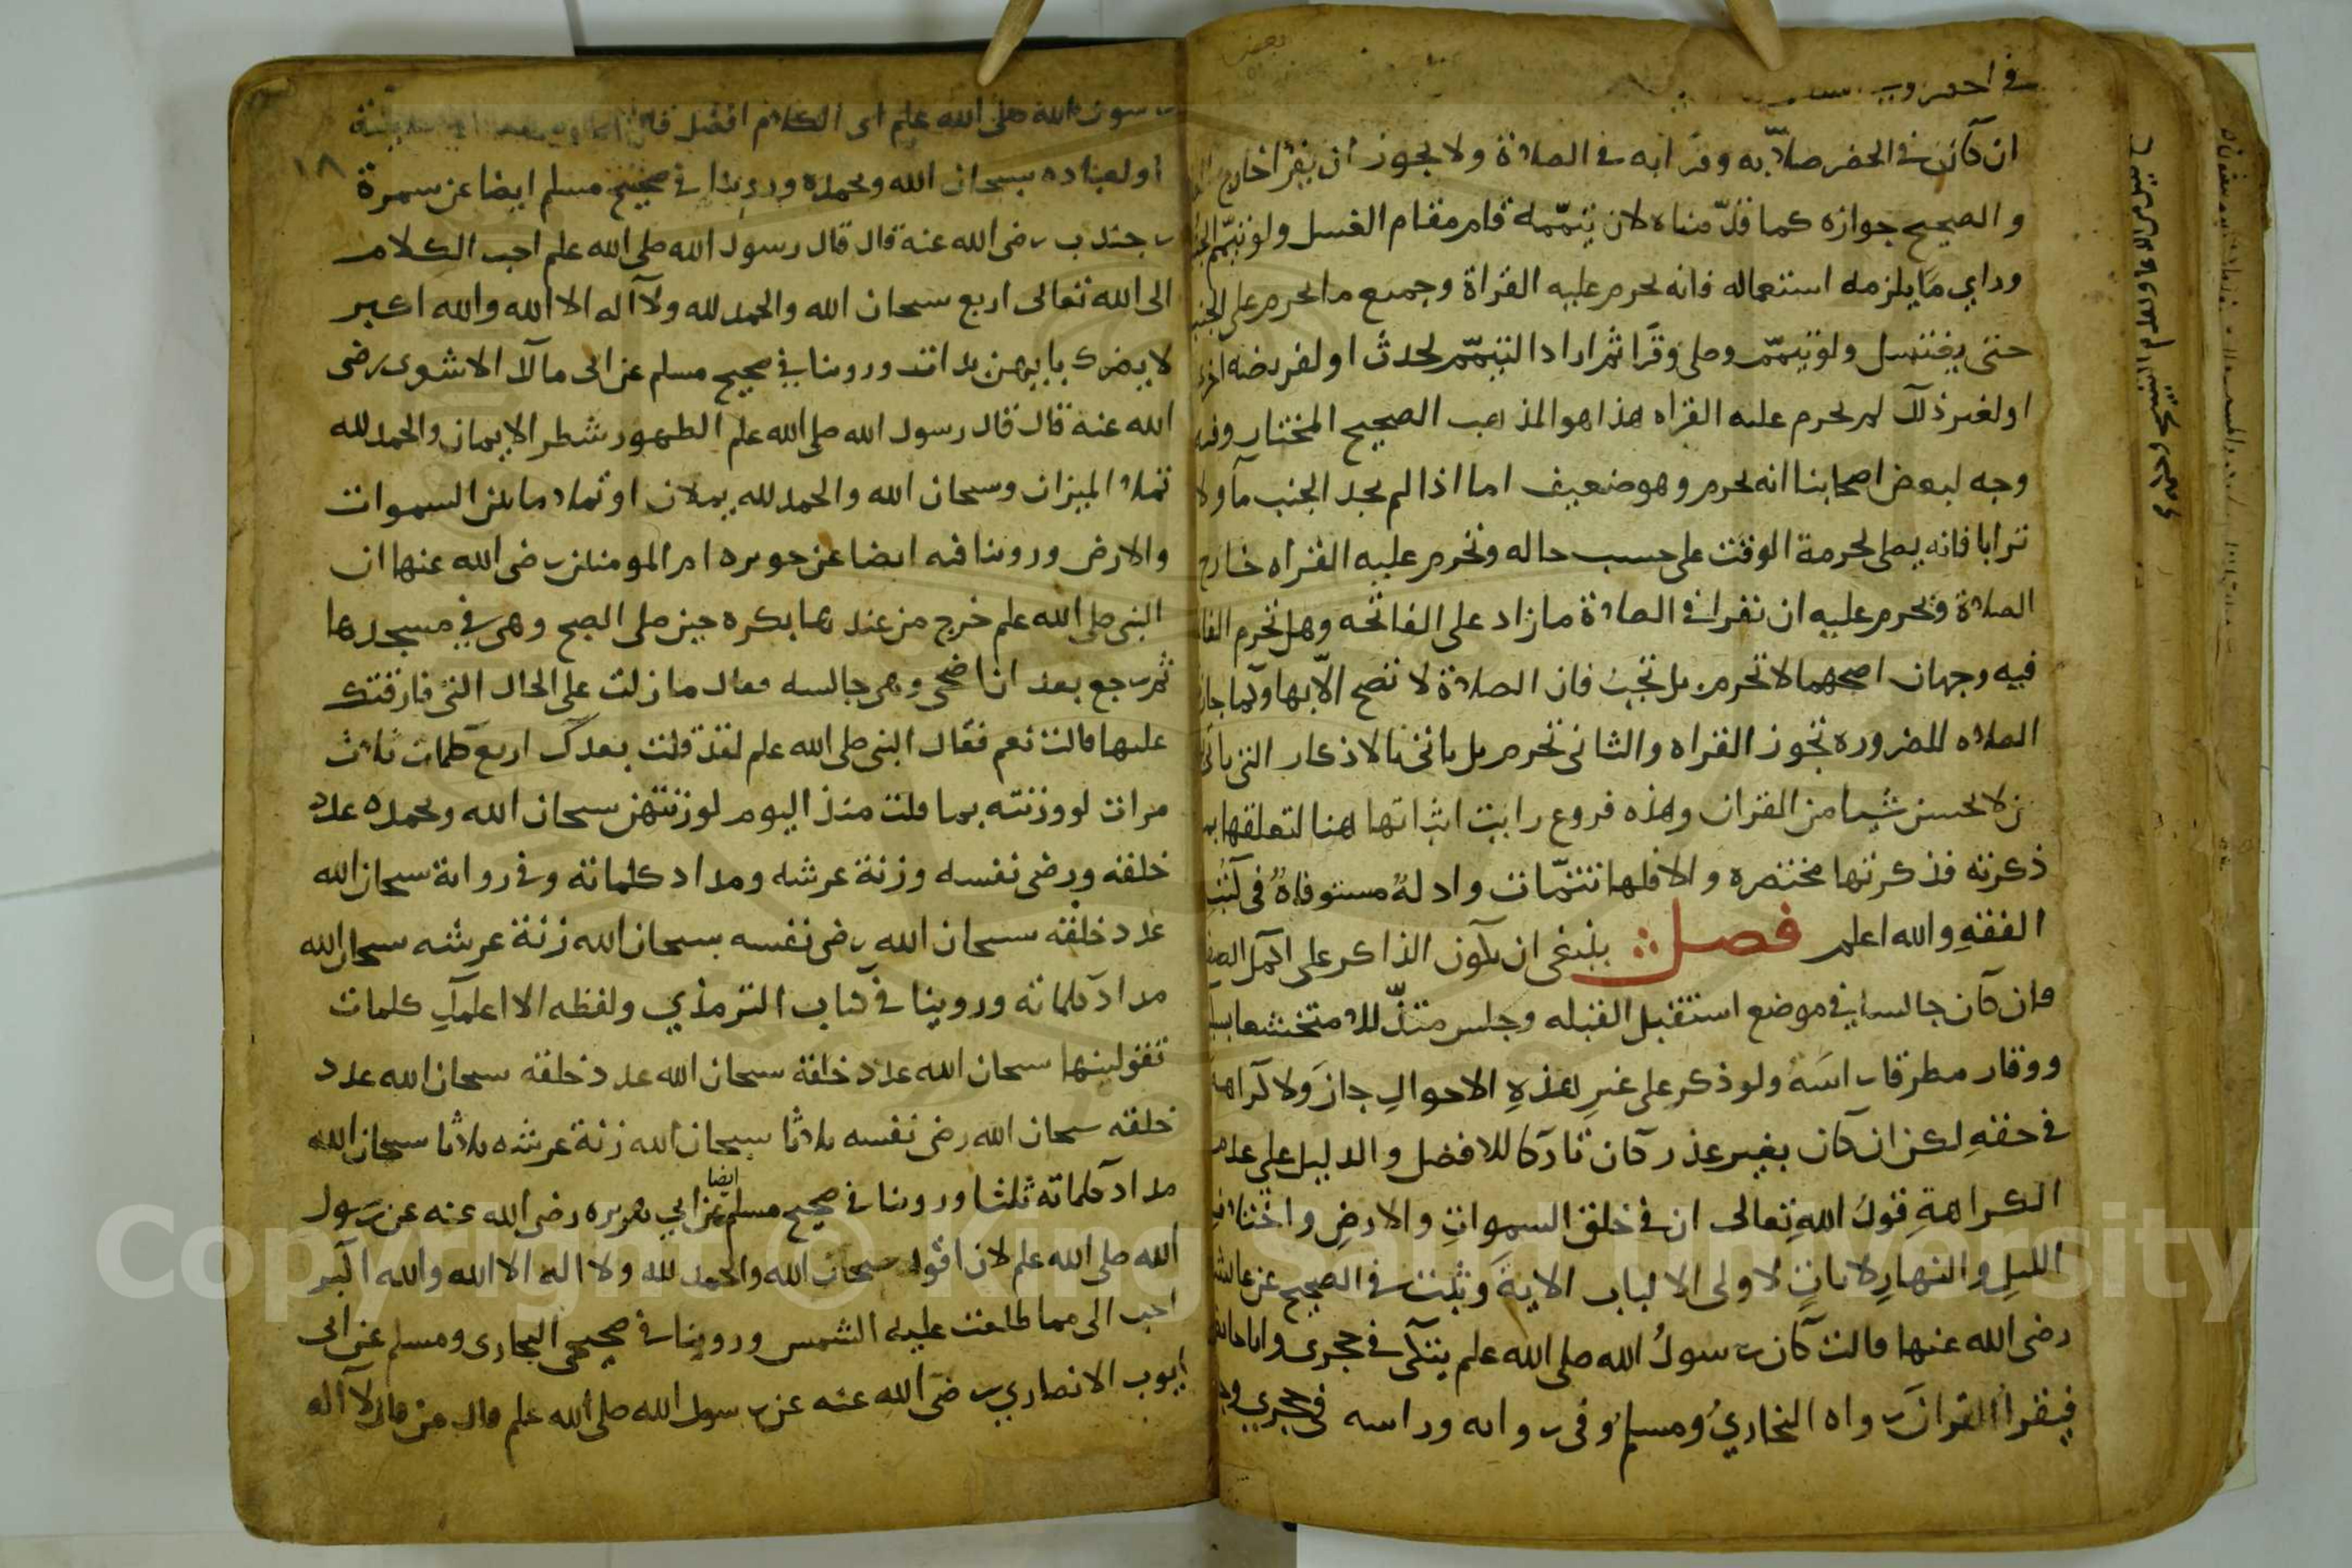 ان كان في الحضر صلا به وقرا به في الصلاة ولا يجوز ان يقرا خارج
والصحيح جوازه كما قدّمناه لان تيمّمه قام مقام الغسل ولو تيمّم الجنب
وراي مآ يلزمه استعماله فانه يحرم عليه القراة وجميع ما يحرم على الجنب
حتى يغتسل ولو تيمّم وصلى وقرَا ثم اراد التيمّم لحدث او لفريضه اخرى
او لغير ذلك لم يحرم عليه القراه هذا هو المذهب الصحيح المختار وفيه
وجه لبعض اصحابنا انه يحرم وهو ضعيف اما اذا لم يجد الجنب مآ ولا
ترابا فانه يصلي لحرمة الوقت على حسب حاله وتحرم عليه القراه خارج
الصلاة ويحرم عليه ان يقرا في الصلاة ما زاد على الفاتحه وهل تحرم الفا
فيه وجهان اصحهما لا تحرم بل تجب فان الصلاة لا تصح الّا بها وكما جاز
الصلاه للضروره تجوز القراه والثاني تحرم بل ياتي بالاذكار التي ياتي
لا يحسن شيا من القران وهذه فروع رايت اثباتها هنا لتعلقها بما
ذكرته فذكرتها مختصره والا فلها تتمّات وادلةٌ مستوفاةٌ في كتب
الفقهِ والله اعلم فصل ينبغي ان يكون الذاكر على اكمل الصفا
فان كان جالسا في موضع استقبل القبله وجلس متذلّلا متخشعا بسكينة
ووقار مطرقا راسَهُ ولو ذكر على غيرِ هذهِ الاحوالِ جازَ ولا كراهة
في حقهِ لكن ان كان بغير عذر كان تاركا للافضل والدليل على عدم
الكراهةِ قولُ اللهِ تعالى ان في خلق السمواتِ والارضِ واختلافِ
الليلِ والنهارِ لاياتٍ لاولي الالباب الايةَ وثبت في الصحيح عن عائشة
رضي الله عنها قالت كان رسولُ الله صلى الله علم يتكي في حجري وانا حائض
فيقرا القرانَ رواه البخاريُ ومسلم وفي روايه وراسه في حجري
رسول الله صلى الله علم اي الكلام افضل قال
او لعباده سبحان الله وبحمده وروينا في صحيح مسلم ايضا عن سمرة
١٨
بن جندب رضي الله عنه قال قال رسول الله صلى الله علم احب الكلام
الى الله تعالى اربع سبحان الله والحمد لله ولا آله الا الله والله اكبر
لا يضرك بايهن بدات وروينا في صحيح مسلم عن ابي مالك الاشعري رضي
الله عنه قال قال رسول الله صلى الله علم الطهور شطر الايمان والحمد لله
تملا الميزان وسبحان الله والحمد لله يملان او تملا ما بين السموات
والارض وروينا فيه ايضا عن جويريه ام المومنين رضي الله عنها ان
النبي صلى الله علم خرج من عندها بكره حين صلى الصبح وهي في مسجدها
ثم رجع بعد ان اضحى وهي جالسه فقال ما زلت على الحال التي فارقتك
عليها قالت نعم فقال النبي صلى الله علم لقد قلت بعدك اربع كلمات ثلاث
مرات لو وزنته بما قلت منذ اليوم لوزنتهن سبحان الله وبحمده عدد
خلقه ورضى نفسه وزنة عرشه ومداد كلماته وفي رواية سبحان الله
عدد خلقه سبحان الله رضى نفسه سبحان الله زنة عرشه سبحان الله
مداد كلماته وروينا في كتاب الترمذي ولفظه الا اعلمك كلمات
تقولينها سبحان الله عدد خلقه سبحان الله عدد خلقه سبحان الله عدد
خلقه سبحان الله رضى نفسه ثلاثا سبحان الله زنة عرشه ثلاثا سبحان الله
مداد كلماته ثلثا وروينا في صحيح مسلم ايضا عن ابي هريره رضي الله عنه عن رسول
الله صلى الله علم لان اقول سبحان الله والحمد لله ولا اله الا الله والله اكبر
احب الى مما طلعت عليه الشمس وروينا في صحيحي البخاري ومسلم عن ابي
ايوب الانصاري رضى الله عنه عن رسول الله صلى الله علم قال من قال لا آله
Copyright © King Saud University